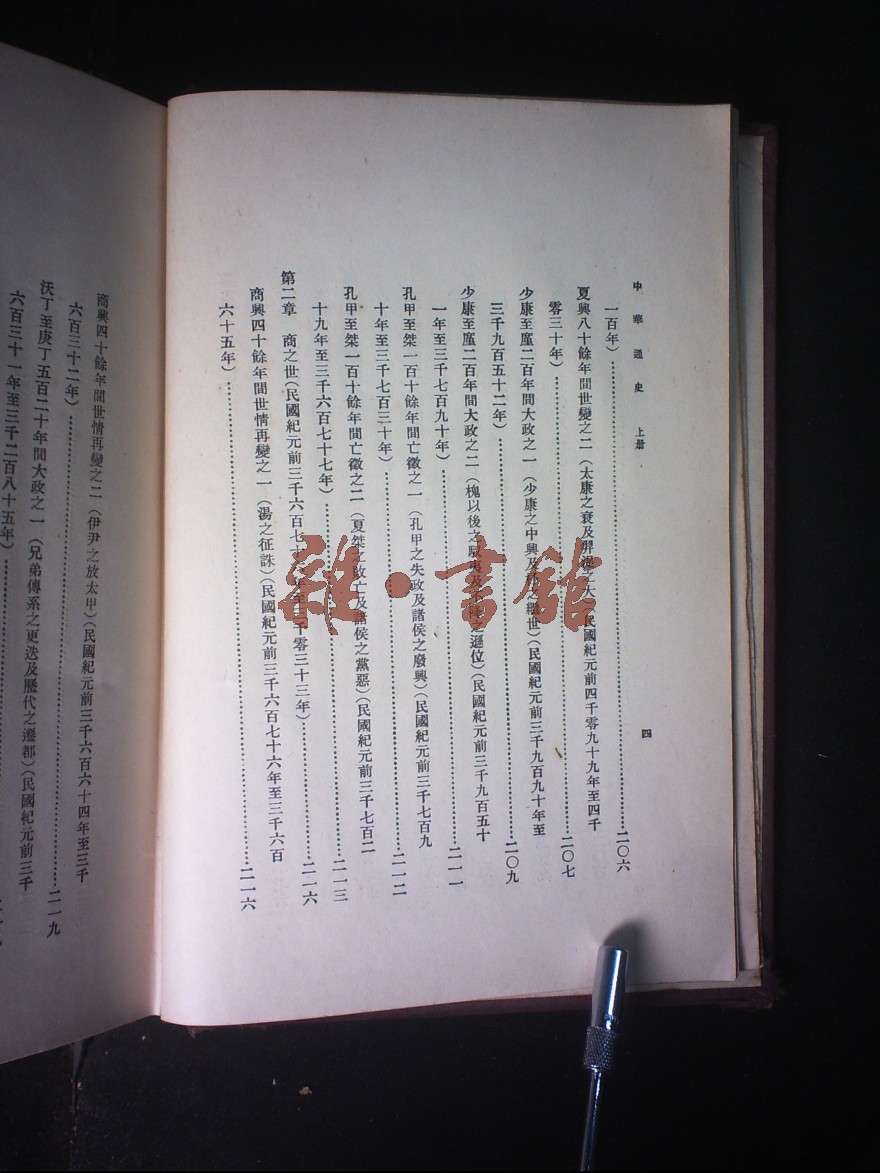 中華通史 上册
四
一百年)……二〇六
夏興八十餘年間世變之二(太康之衰及羿浞之大)(民國紀元前四千零九十九年至四千
零三十年)……二〇七
少康至廑二百年間大政之一(少康之中興及 之繼世)(民國紀元前三千九百九十年至
三千九百五十二年)……二〇九
少康至廑二百年間大政之二(槐以後之 夷及 之遜位)(民國紀元前三千九百五十
一年至三千七百九十年)……二一一
孔甲至桀一百十餘年間亡徵之一(孔甲之失政及諸侯之廢興)(民國紀元前三千七百九
十年至三千七百三十年)……二一二
孔甲至桀一百十餘年間亡徵之二(夏桀之敗亡及諸侯之黨惡)(民國紀元前三千七百二
十九年至三千六百七十七年)……二一三
第二章 商之世(民國紀元前三千六百七十六年至三千零三十三年)……二一六
商興四十餘年間世情再變之一(湯之征誅)(民國紀元前三千六百七十六年至三千六百
六十五年)……二一六
商興四十餘年間世情再變之二(伊尹之放太甲)(民國紀元前三千六百六十四年至三千
六百三十二年)……二一九
沃丁至庚丁五百二十年間大政之一(兄弟傳系之更迭及歷代之遷都)(民國紀元前三千
六百三十一年至三千二百八十五年)……
雜·書館